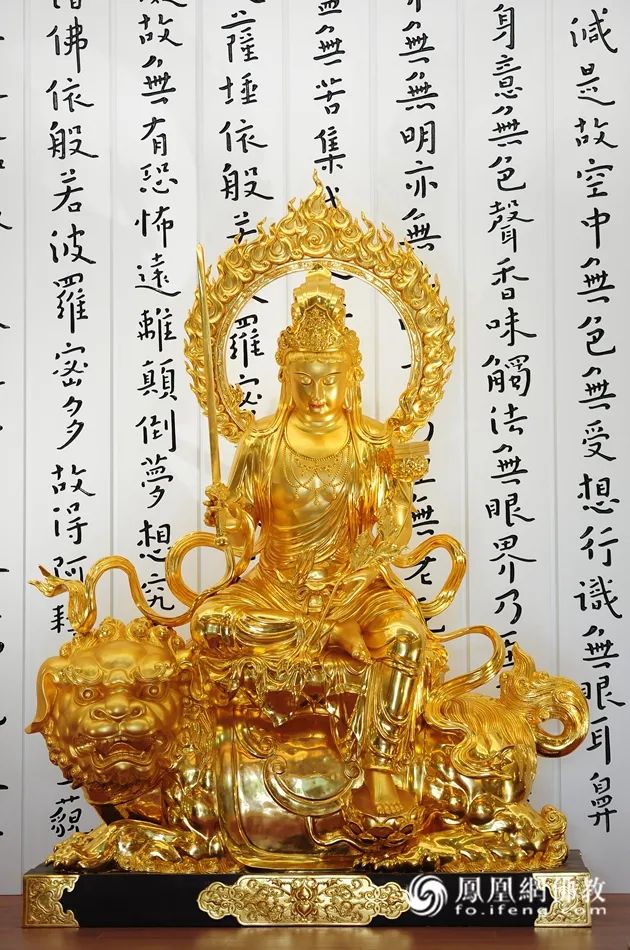 減是故空中無色無受想行識無眼耳鼻
身意無色聲香味觸法無眼界乃至
無無明亦無 無老
無苦集
薩埵依般若 羅密
故無有恐怖遠離顛倒夢想究
佛依般若波羅密多故得阿耨 藐
鳳凰網佛教
fo.ifeng.com